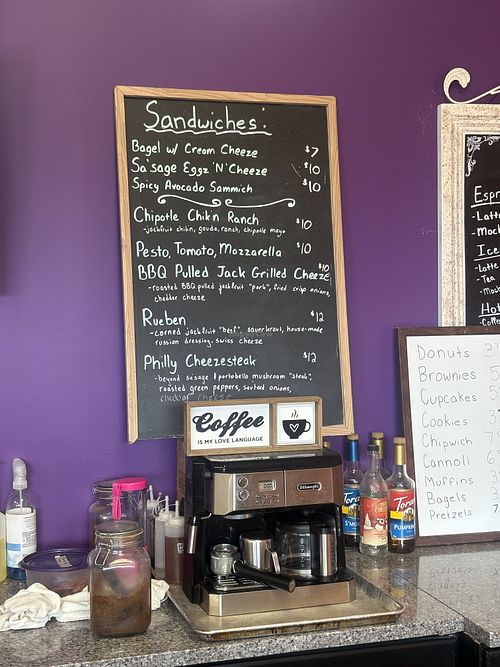 Sandwiches:
Bagel w/ Cream Cheeze $7
Sa'sage Eggz 'N' Cheeze $10
Spicy Avocado Sammich $10
Chipotle Chik'n Ranch $10
-jackfruit chikin, gouda, ranch, chipotle mayo
Pesto, Tomato, Mozzarella $10
BBQ Pulled Jack Grilled Cheeze $10
-roasted BBQ pulled jackfruit "pork", fried crisp onions,
cheddar cheeze
Rueben $12
-corned jackfruit "beef", sauerkraut, house-made
russian dressing, swiss cheeze
Philly Cheezesteak $12
-beyond sa'sage | portobello mushroom "steak",
roasted green peppers, sauteed onions,
cheddar cheeze
Coffee
IS MY LOVE LANGUAGE
DeLonghi
Torani
S'MO
Torani
PUMPKIN
Espr
-Latt
-Moc
Ice
-Latte
-Tea
-Mo
Hot
-Coffe
Donuts 3
Brownies 5
Cupcakes 5
Cookies 3
Chipwich 7
Cannoli 6
Muffins 3
Bagels
Pretzels 7